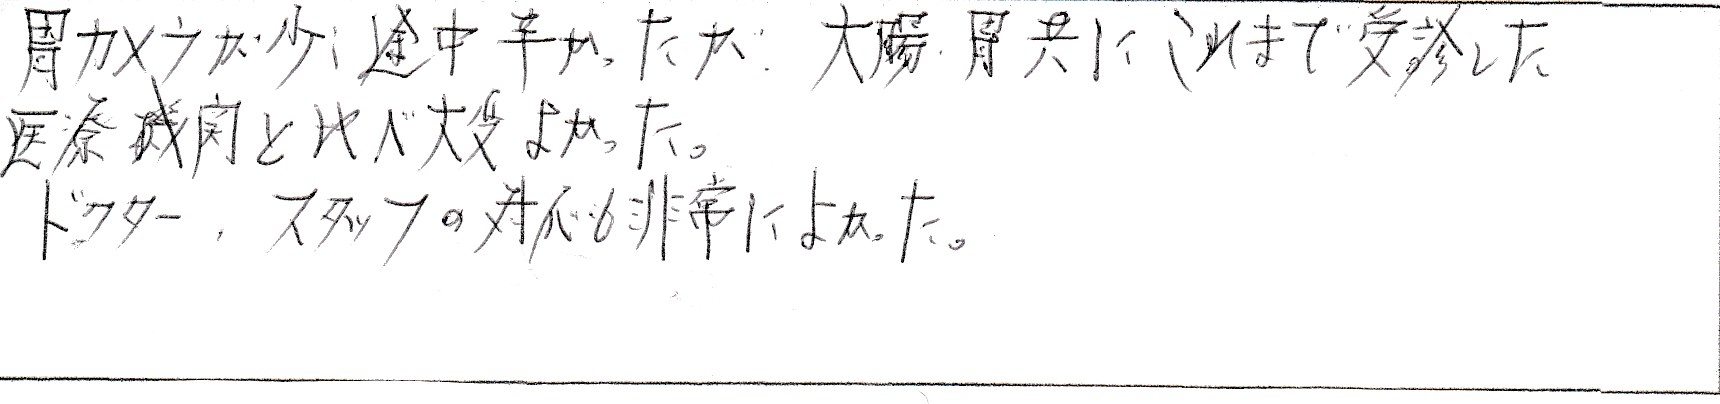 胃カメラが少し途中辛かったが、大腸、胃共にこれまで受診した
医療機関と比べ大変よかった。
ドクター、スタッフの対応も非常によかった。